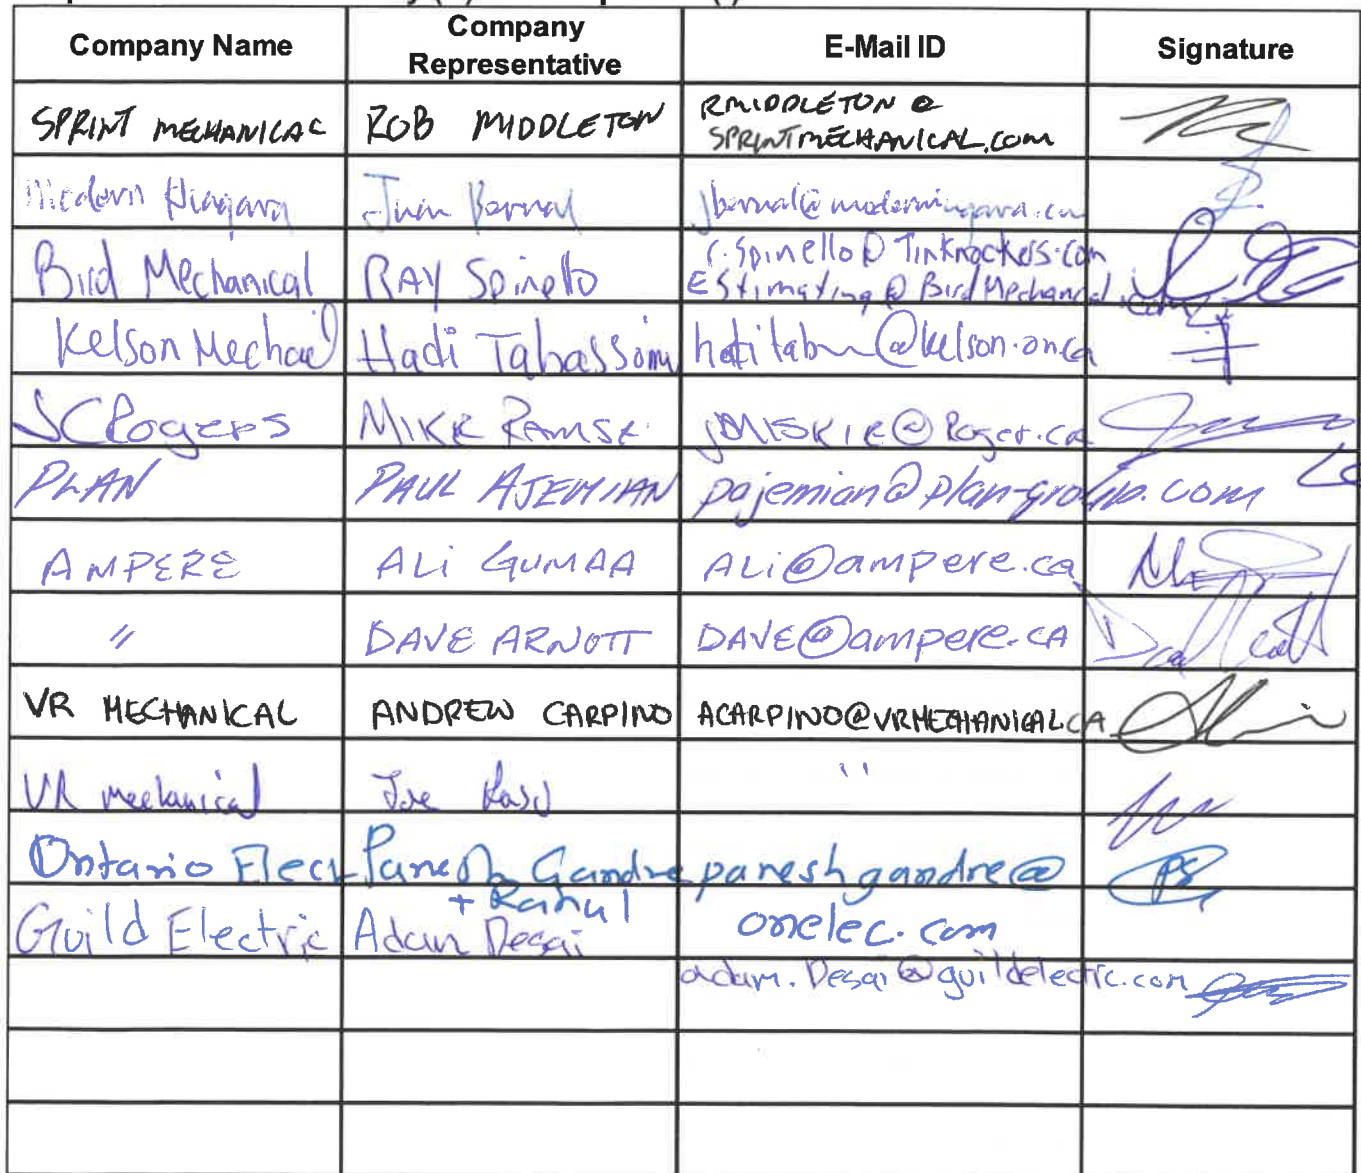 Company Name Company Representative E-Mail ID Signature
SPRINT MECHANICAL ROB MIDDLETON RMIDDLETON @
SPRINTMECHANICAL.COM
Modern Niagara Juan Bernal jbernal@
Bird Mechanical RAY Spinello r.spinello@Tinknockers.com
Estimating@BirdMechanical.com
Kelson Hadi @kelson.on.ca
JC Rogers MIKE
PLAN PAUL AJEMIAN pajemian@plan-group.com
AMPERE ALi GUMAA ALi@ampere.ca
" DAVE ARNOTT DAVE@ampere.CA
VR MECHANICAL ANDREW CARPINO ACARPINO@VRMECHANICAL.CA
VR Mechanical Joe "
Ontario Elect Paresh Gandre pareshgandre@
+ Rahul onelec.com
Guild Electric Adam Desai
adam.Desai@guildelectric.com